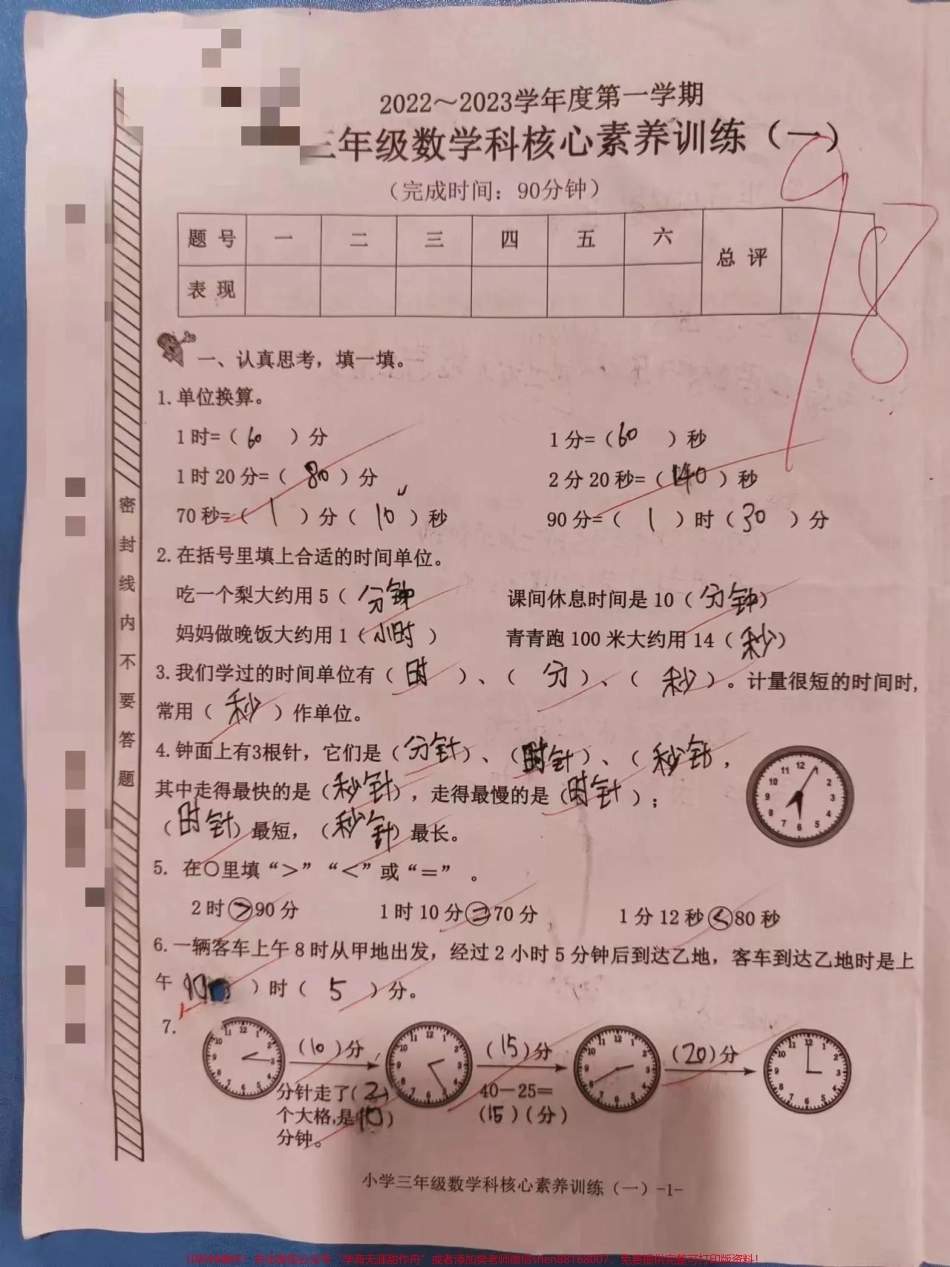 2022～2023学年度第一学期
三年级数学科核心素养训练（一）
（完成时间：90分钟）
98
题 号 一 二 三 四 五 六 总 评
表 现
一、认真思考，填一填。
1.单位换算。
1时=（ 60 ）分 1分=（ 60 ）秒
1时20分=（ 80 ）分 2分20秒=（ 140 ）秒
70秒=（ 1 ）分（ 10 ）秒 90分=（ 1 ）时（ 30 ）分
2.在括号里填上合适的时间单位。
吃一个梨大约用5（ 分钟 课间休息时间是10（ 分钟）
妈妈做晚饭大约用1（小时 ） 青青跑100米大约用14（ 秒）
3.我们学过的时间单位有（ 时 ）、（ 分 ）、（ 秒 ）。计量很短的时间时,
常用（ 秒 ）作单位。
4.钟面上有3根针，它们是（分针）、（时针）、（ 秒针，
其中走得最快的是（秒针），走得最慢的是（时针 ）；
（时针）最短，（秒针）最长。
12 1 2 3 4 5 6 7 8 9 10 11
5. 在○里填“＞”“＜”或“＝” 。
2时＞90分 1时10分＝70分 1分12秒＜80秒
6.一辆客车上午8时从甲地出发，经过2小时5分钟后到达乙地，客车到达乙地时是上
午 10 ）时（ 5 ）分。
7.
（10）分 （15）分 （20）分
分针走了（2）
个大格,是（10）
分钟。
40－25＝
（15）（分）
密封线内不要答题
小学三年级数学科核心素养训练（一）-1-